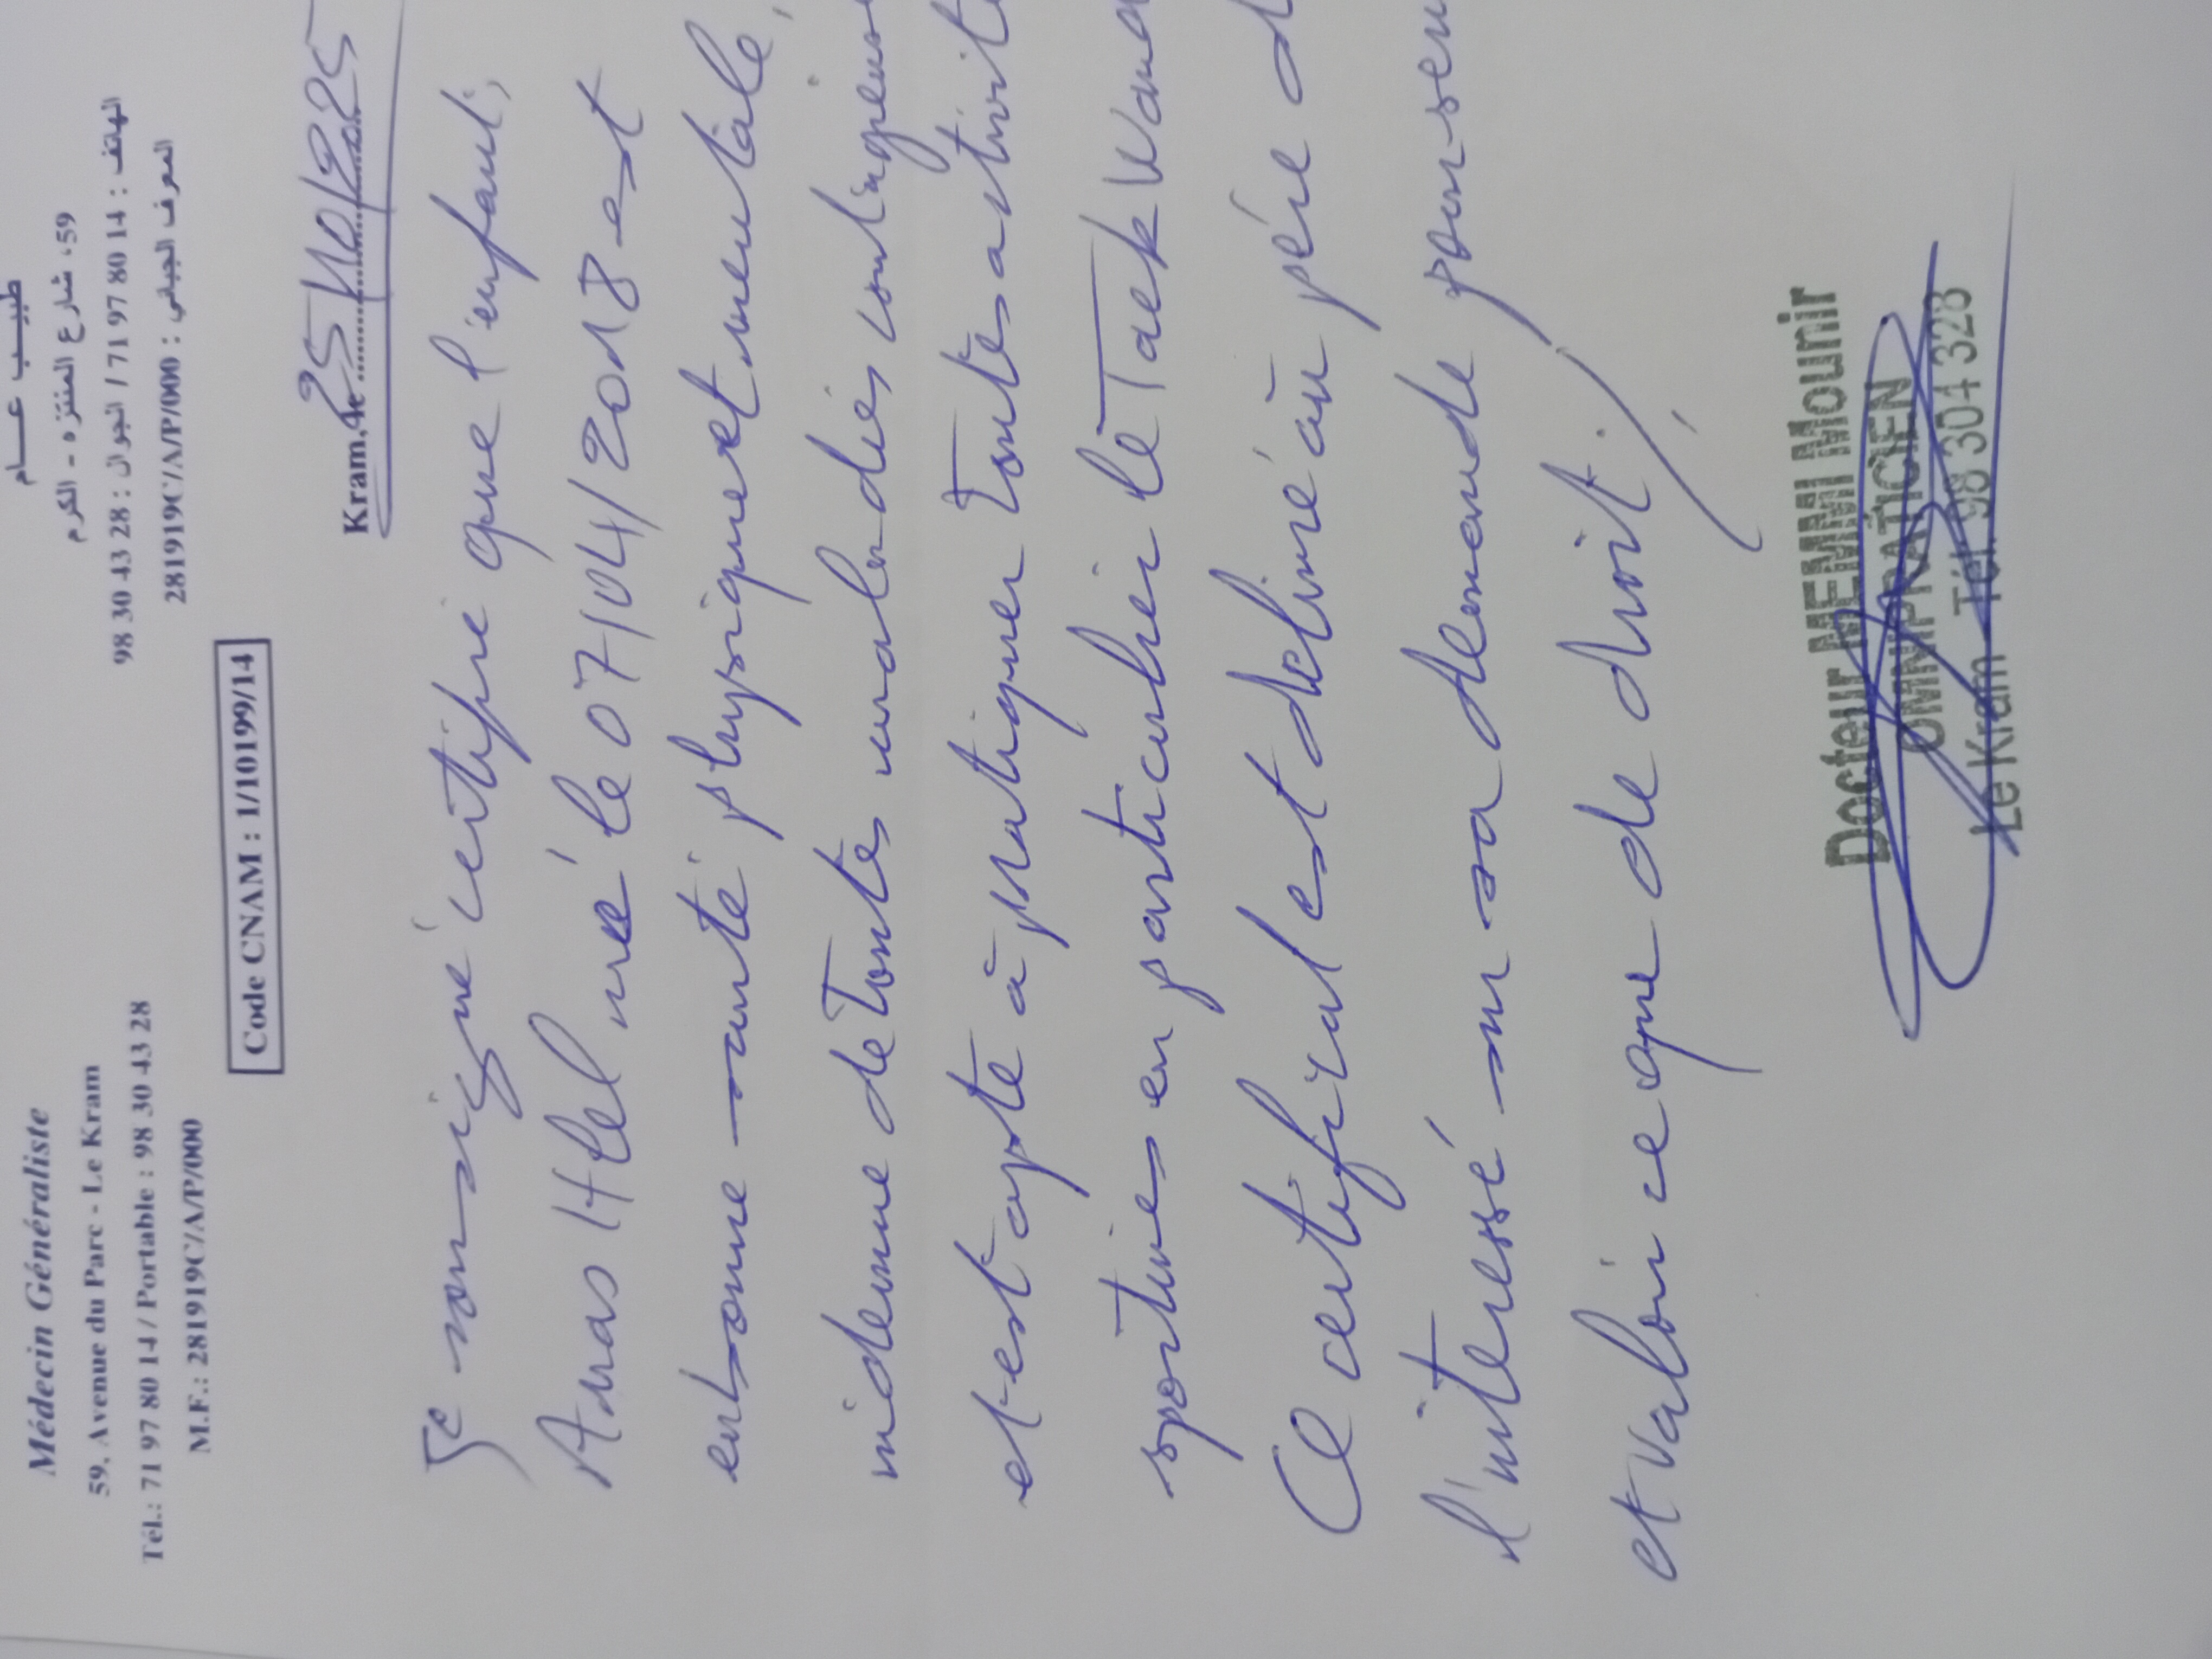 Médecin Généraliste
59, Avenue du Parc - Le Kram
Tél.: 71 97 80 14 / Portable : 98 30 43 28
M.F.: 281919C/A/P/000
طبيب عام
59، شارع المنتزه - الكرم
الهاتف : 14 80 97 71 / الجوال : 28 43 30 98
المعرف الجبائي : 281919C/A/P/000
Code CNAM : 1/10199/14
Kram, le 25/10/2025
Je soussigné certifie que l'enfant,
Anas né le 07/04/2018 est
en bonne santé physique et mentale,
indemne de toutes maladies contagieuse
et est apte à pratiquer toutes activité
sportives en particulier le Taek Wand
Ce certificat est délivré au père d
l'intéressé sur sa demande pour ser
et valoir ce que de droit.
Docteur MEMMI Mounir
OMNIPRATICIEN
Le Kram Tél: 98 304 328